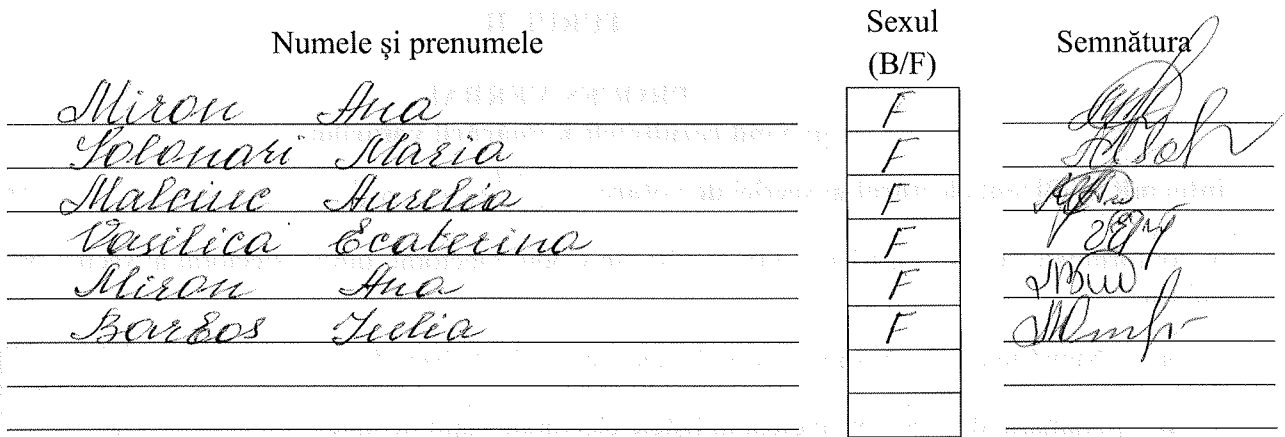 Numele și prenumele Sexul (B/F) Semnătura
Miron Ana F
Solonari Maria F
Malciuc Aurelia F
Vasilica Ecaterina F
Miron Ana F
Barbos Iulia F